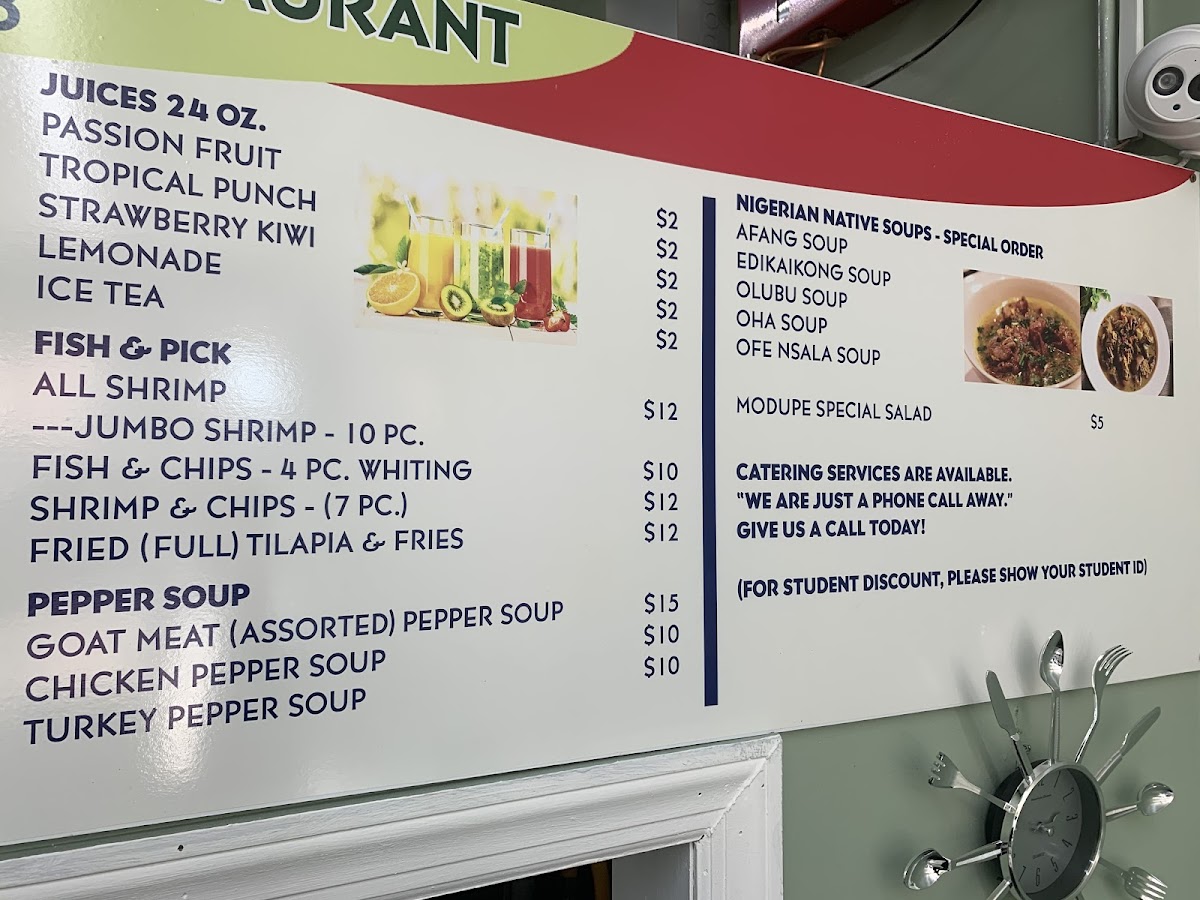 JUICES 24 OZ.
PASSION FRUIT $2
TROPICAL PUNCH $2
STRAWBERRY KIWI $2
LEMONADE $2
ICE TEA $2
FISH & PICK
ALL SHRIMP
---JUMBO SHRIMP - 10 PC. $12
FISH & CHIPS - 4 PC. WHITING $10
SHRIMP & CHIPS - (7 PC.) $12
FRIED (FULL) TILAPIA & FRIES $12
PEPPER SOUP
GOAT MEAT (ASSORTED) PEPPER SOUP $15
CHICKEN PEPPER SOUP $10
TURKEY PEPPER SOUP $10
NIGERIAN NATIVE SOUPS - SPECIAL ORDER
AFANG SOUP
EDIKAIKONG SOUP
OLUBU SOUP
OHA SOUP
OFE NSALA SOUP
MODUPE SPECIAL SALAD $5
CATERING SERVICES ARE AVAILABLE.
"WE ARE JUST A PHONE CALL AWAY."
GIVE US A CALL TODAY!
(FOR STUDENT DISCOUNT, PLEASE SHOW YOUR STUDENT ID)